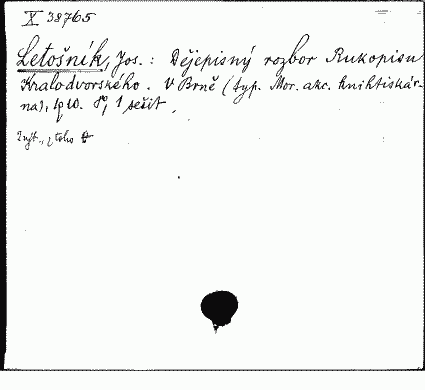 X 38765
Letošník, Jos.: Dějepisný rozbor Rukopisu
Kralodvorského. V Brně (typ. Mor. akc. knihtiskár-
na), 1910. 8°, 1 sešit.
z toho